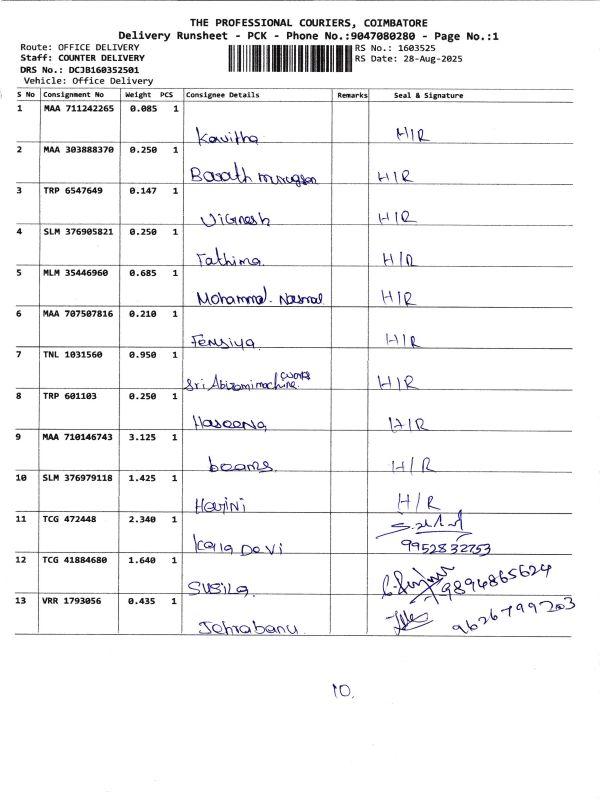 THE PROFESSIONAL COURIERS, COIMBATORE
Delivery Runsheet - PCK - Phone No.:9047080280 - Page No.:1
Route: OFFICE DELIVERY
RS No.: 1603525
Staff: COUNTER DELIVERY
RS Date: 28-Aug-2025
DRS No.: DCJB160352501
Vehicle: Office Delivery
S No Consignment No Weight PCS Consignee Details Remarks Seal & Signature
1 MAA 711242265 0.085 1
Kavitha H/R
2 MAA 303888370 0.250 1
Barath murugan H/R
3 TRP 6547649 0.147 1
Vignesh H/R
4 SLM 376905821 0.250 1
Fathima. H/R
5 MLM 35446960 0.685 1
Mohammed. H/R
6 MAA 707507816 0.210 1
Fensiya. H/R
7 TNL 1031560 0.950 1
works
Sri H/R
8 TRP 601103 0.250 1
Haseena H/R
9 MAA 710146743 3.125 1
beams H/R
10 SLM 376979118 1.425 1
Harini H/R
11 TCG 472448 2.340 1
Kala Devi 9952832753
12 TCG 41884680 1.640 1
Susila. 9894865624
13 VRR 1793056 0.435 1
Johrabanu. 9626799203
10.